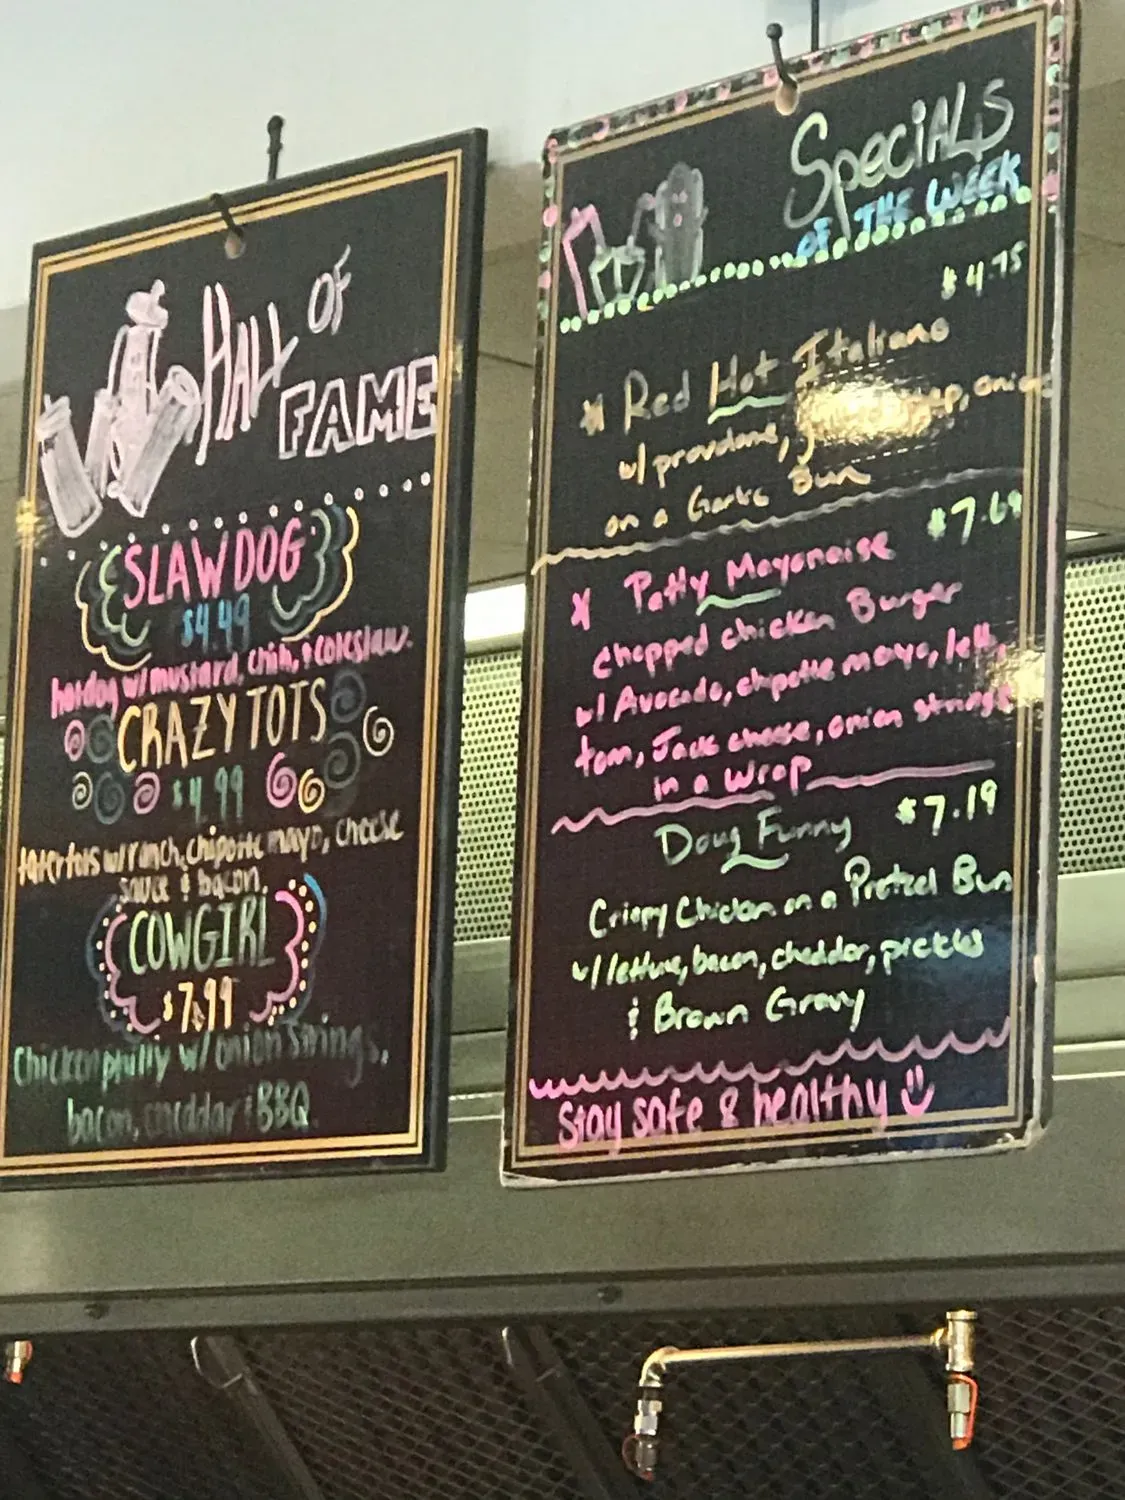 HALL OF
FAME
SLAW DOG
$4.49
hotdog w/ mustard, chili, & coleslaw.
CRAZY TOTS
$4.99
tatertots w/ ranch, chipotle mayo, cheese
sauce & bacon.
COWGIRL
$7.99
chicken philly w/ onion strings,
bacon, cheddar & BBQ
SPeciALS
OF THE WEEK
$4.75
* Red Hot Italiano
w/ provolone, onion
on a Garlic Bun
$7.69
* Patty Mayonaise
chopped chicken Burger
w/ Avocado, chipotle mayo, lett,
tom, Jack cheese, onion strings
in a Wrap
Doug Funny $7.19
Crispy Chicken on a Pretzel Bun
w/ lettuce, bacon, cheddar, pickles
& Brown Gravy
Stay safe & healthy